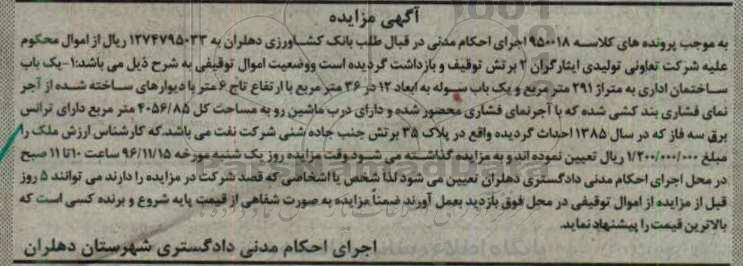 آگهی مزایده
به موجب پرونده های کلاسه ۹۵۰۰۱۸ اجرای احکام مدنی در قبال طلب بانک کشاورزی دهلران به ۱۲۷۴۷۹۵۰۳۳ ریال از اموال محکوم
علیه شرکت تعاونی تولیدی ایثارگران ۲ برتش توقیف و بازداشت گردیده است ووضعیت اموال توقیفی به شرح ذیل می باشد:۱-یک باب
ساختمان اداری به متراژ ۲۹۱ متر مربع و یک باب سوله به ابعاد ۱۲ در ۳۶ متر مربع با ارتفاع تاج ۶ متر با دیوارهای ساخته شده از آجر
نمای فشاری بند کشی شده که با آجرنمای فشاری محصور شده و دارای درب ماشین رو به مساحت کل ۴۰۵۶/۸۵ متر مربع دارای ترانس
برق سه فاز که در سال ۱۳۸۵ احداث گردیده واقع در پلاک ۳۵ برتش جنب جاده شنی شرکت نفت می باشد.که کارشناس ارزش ملک را
مبلغ ۱/۲۰۰/۰۰۰/۰۰۰ ریال تعیین نموده اند و به مزایده گذاشته می شود.وقت مزایده روز یک شنبه مورخه ۹۶/۱۱/۱۵ ساعت ۱۰ تا ۱۱ صبح
در محل اجرای احکام مدنی دادگستری دهلران تعیین می شود لذا شخص یا اشخاصی که قصد شرکت در مزایده را دارند می توانند ۵ روز
قبل از مزایده از اموال توقیفی در محل فوق بازدید بعمل آورند ضمناً مزایده به صورت شفاهی از قیمت پایه شروع و برنده کسی است که
بالاترین قیمت را پیشنهاد نماید.
اجرای احکام مدنی دادگستری شهرستان دهلران